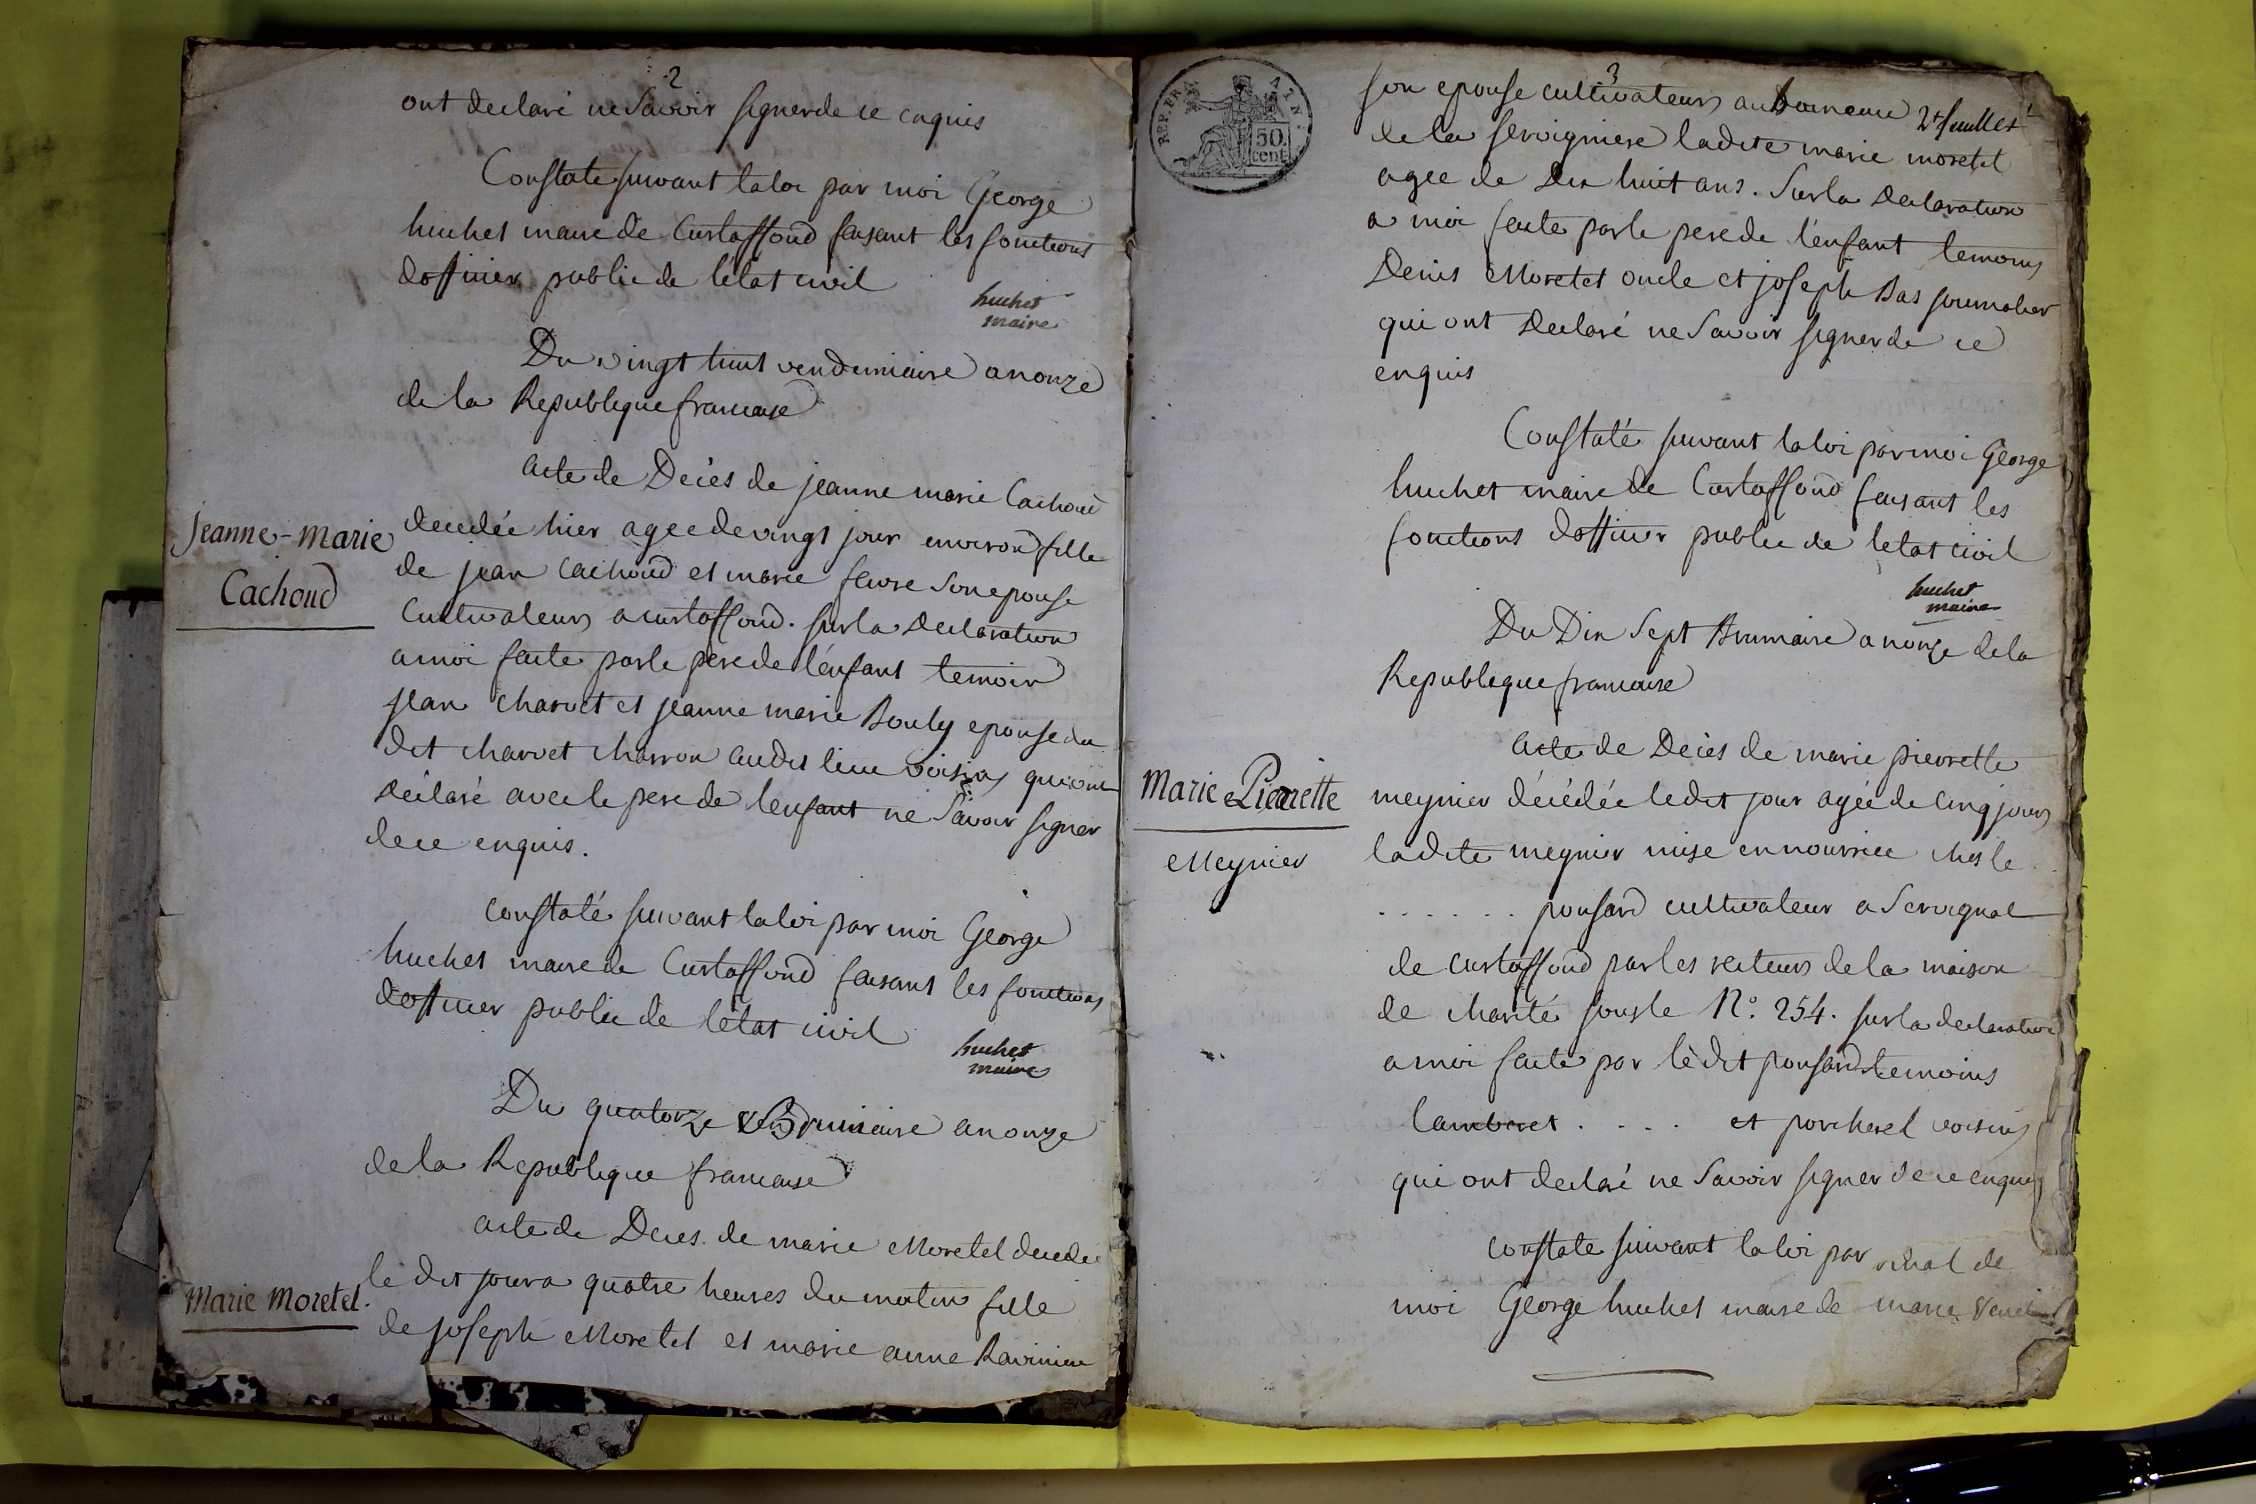 2
ont declaré ne Savoir signer de ce enquis
Constate suivant la loi par moi George
huchet maire de Curtaffond faisant les fonctions
dofficier public de l'état civil
huchet
maire
Du vingt huit vendemiaire an onze
de la Republique francaise
acte de Décès de jeanne marie Cachoud
Jeanne-Marie
Cachoud
decedée hier agee de vingt jour environ fille
de jean cachoud et marie favre son epouse
Cultivateurs a curtaffond. sur la declaration
a moi faite par le pere de l'enfant temoin
jean charvet et jeanne marie Bouly epouse du
dit charvet charron audit lieu voisins qui ont
déclaré avec le pere de lenfant ne Savoir signer
de ce enquis.
constaté suivant la loi par moi George
huchet maire de Curtaffond faisant les fonctions
dofficier public de l'état civil
huchet
maire
Du quatorze Brumaire an onze
de la Republique francaise
acte de Decès de marie Moretel decedée
Marie Moretel.
le dit jour a quatre heures du matin fille
de joseph Moretel et marie anne Raviniere
REP. FRA.
AIN.
50.
cent
3
2e feuillet
son epouse cultivateurs au hameau
de la servigniere ladite marie moretel
agee de dix huit ans. Sur la declaration
a moi faite par le pere de l'enfant temoins
Denis Moretel oncle et joseph Bas journalier
qui ont declaré ne Savoir signer de ce
enquis
Constaté suivant la loi par moi George
huchet maire de Curtaffond faisant les
fonctions dofficier public de l'état civil
huchet
maire
Du Dix Sept Brumaire an onze de la
Republique francaise
acte de Décès de marie pierrette
Marie Pierrette
Meynier
meynier décédée ledit jour agée de cinq jours
ladite meynier mise en nourrice chez le
. . . . . . . ponsard cultivateur a Servignat
de curtaffond par les recteurs de la maison
de charité sous le N°. 254. sur la declaration
a moi faite par le dit ponsard temoins
lamberet . . . . et porcherel voisins
qui ont declaré ne Savoir signer de ce enquis
constate suivant la loi par
moi George huchet maire de